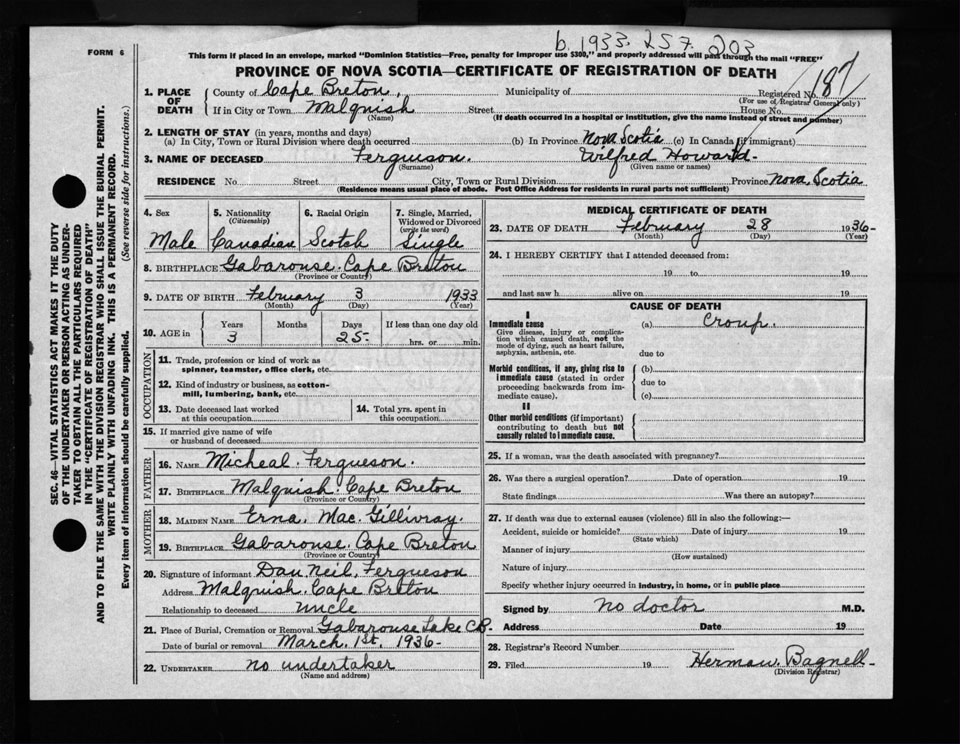 b. 1933. 257. 203
FORM 6
This form if placed in an envelope, marked "Dominion Statistics—Free, penalty for improper use $300," and properly addressed will pass through the mail "FREE"
PROVINCE OF NOVA SCOTIA—CERTIFICATE OF REGISTRATION OF DEATH
1. PLACE OF DEATH
County of Cape Breton, Municipality of Registered No. 187
(For use of Registrar General only)
If in City or Town Malquish Street House No.
(Name) (If death occurred in a hospital or institution, give the name instead of street and number)
2. LENGTH OF STAY (in years, months and days)
(a) In City, Town or Rural Division where death occurred (b) In Province Nova Scotia (c) In Canada (if immigrant)
3. NAME OF DECEASED Ferguson. Wilfred Howard-
(Surname) (Given name or names)
RESIDENCE No. Street City, Town or Rural Division Province Nova Scotia
(Residence means usual place of abode. Post Office Address for residents in rural parts not sufficient)
4. Sex 5. Nationality (Citizenship) 6. Racial Origin 7. Single, Married, Widowed or Divorced (write the word)
Male Canadian Scotch Single
8. BIRTHPLACE Gabarouse. Cape Breton
(Province or Country)
9. DATE OF BIRTH February 3 1933
(Month) (Day) (Year)
10. AGE in Years Months Days If less than one day old
3 25- hrs. or min.
OCCUPATION
11. Trade, profession or kind of work as spinner, teamster, office clerk, etc.
12. Kind of industry or business, as cotton-mill, lumbering, bank, etc.
13. Date deceased last worked at this occupation
14. Total yrs. spent in this occupation
15. If married give name of wife or husband of deceased
FATHER
16. NAME Micheal. Fergueson.
17. BIRTHPLACE Malquish. Cape Breton
(Province or Country)
MOTHER
18. MAIDEN NAME Erna. Mac. Gillivray.
19. BIRTHPLACE Gabarouse. Cape Breton
(Province or Country)
20. Signature of informant Dan Neil. Fergueson
Address Malquish. Cape Breton
Relationship to deceased uncle
21. Place of Burial, Cremation or Removal Gabarouse Lake C.B.
Date of burial or removal March. 1st. 1936-
22. UNDERTAKER no undertaker
(Name and address)
MEDICAL CERTIFICATE OF DEATH
23. DATE OF DEATH February 28 1936-
(Month) (Day) (Year)
24. I HEREBY CERTIFY that I attended deceased from:
19 to 19
and last saw h alive on 19
CAUSE OF DEATH
I
Immediate cause
Give disease, injury or complication which caused death, not the mode of dying, such as heart failure, asphyxia, asthenia, etc.
(a) Croup.
due to
Morbid conditions, if any, giving rise to immediate cause (stated in order proceeding backwards from immediate cause).
(b)
due to
(c)
II
Other morbid conditions (if important) contributing to death but not causally related to immediate cause.
25. If a woman, was the death associated with pregnancy?
26. Was there a surgical operation? Date of operation 19
State findings Was there an autopsy?
27. If death was due to external causes (violence) fill in also the following:—
Accident, suicide or homicide? Date of injury 19
(State which)
Manner of injury
(How sustained)
Nature of injury
Specify whether injury occurred in industry, in home, or in public place
Signed by no doctor M.D.
Address Date 19
28. Registrar's Record Number
29. Filed 19 Herman. Bagnell-
(Division Registrar)
SEC. 46—VITAL STATISTICS ACT MAKES IT THE DUTY
OF THE UNDERTAKER OR PERSON ACTING AS UNDER-
TAKER TO OBTAIN ALL THE PARTICULARS REQUIRED
IN THE "CERTIFICATE OF REGISTRATION OF DEATH"
AND TO FILE THE SAME WITH THE DIVISION REGISTRAR WHO SHALL ISSUE THE BURIAL PERMIT.
WRITE PLAINLY WITH UNFADING INK. THIS IS A PERMANENT RECORD.
Every item of information should be carefully supplied. (See reverse side for instructions.)